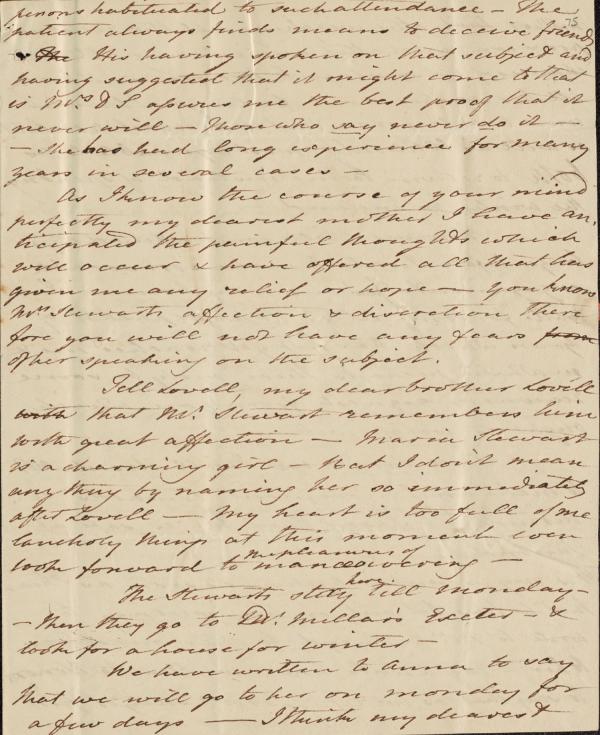 persons habituated to such attendance – The
75
patient always finds means to deceive friends
– The His having spoken on that subject and
having suggested that it might come to that
is Mrs. D S assures me the best proof that it
never will – Those who say never do it –
– She has had long experience for many
years in several cases –
As I know the course of your mind
perfectly my dearest mother I have an-
ticipated the painful thoughts which
will occur & have offered all that has
given me any relief or hope – You know
Mrs Stewarts affection & discretion There
fore you will not have any fears from
of her speaking on the subject.
Tell Lovell, my dear brother Lovell
with that Mr. Stewart remembers him
with great affection – Maria Stewart
is a charming girl – But I don't mean
any thing by naming her so immediately
after Lovell – My heart is too full of me
lancholy things at this moment even
look forward to the pleasures of manœuvering –
The Stewarts stay here till monday –
– Then they go to Dr. Millar's Exeter – &
look for a house for winter –
We have written to Anna to say
that we will go to her on monday for
a few days — I think my dearest